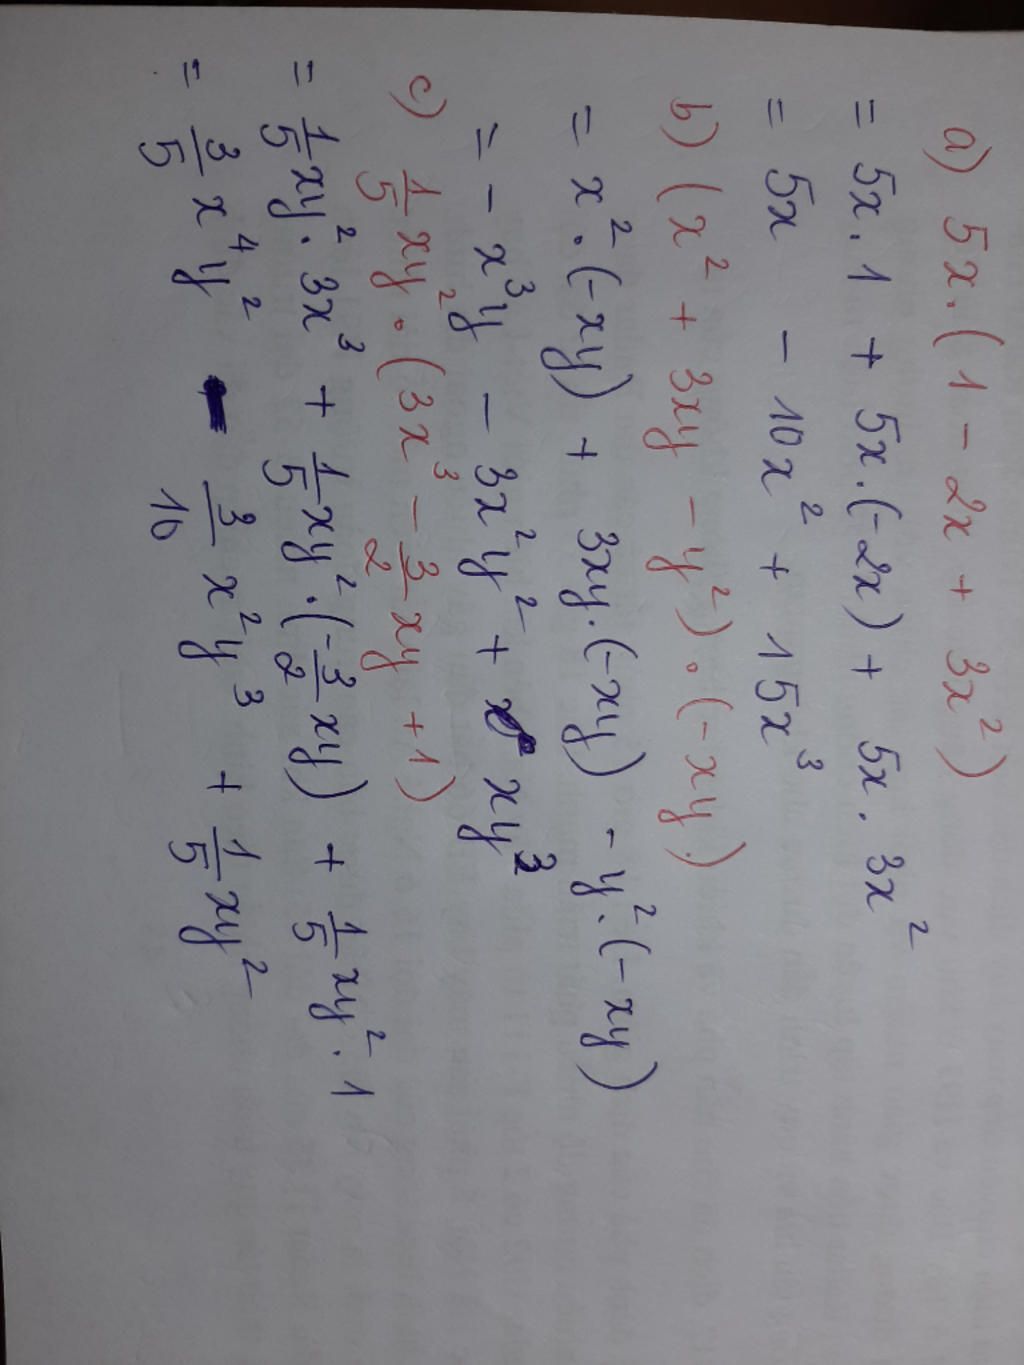 a) 5x.(1 - 2x + 3x²)
= 5x.1 + 5x.(-2x) + 5x.3x²
= 5x - 10x² + 15x³
b) (x² + 3xy - y²).(-xy)
= x².(-xy) + 3xy.(-xy) - y².(-xy)
= - x³y - 3x²y² + xy³
c) 1/5 xy².(3x³ - 3/2 xy + 1)
= 1/5 xy².3x³ + 1/5 xy².(-3/2 xy) + 1/5 xy².1
= 3/5 x⁴y² - 3/10 x²y³ + 1/5 xy²